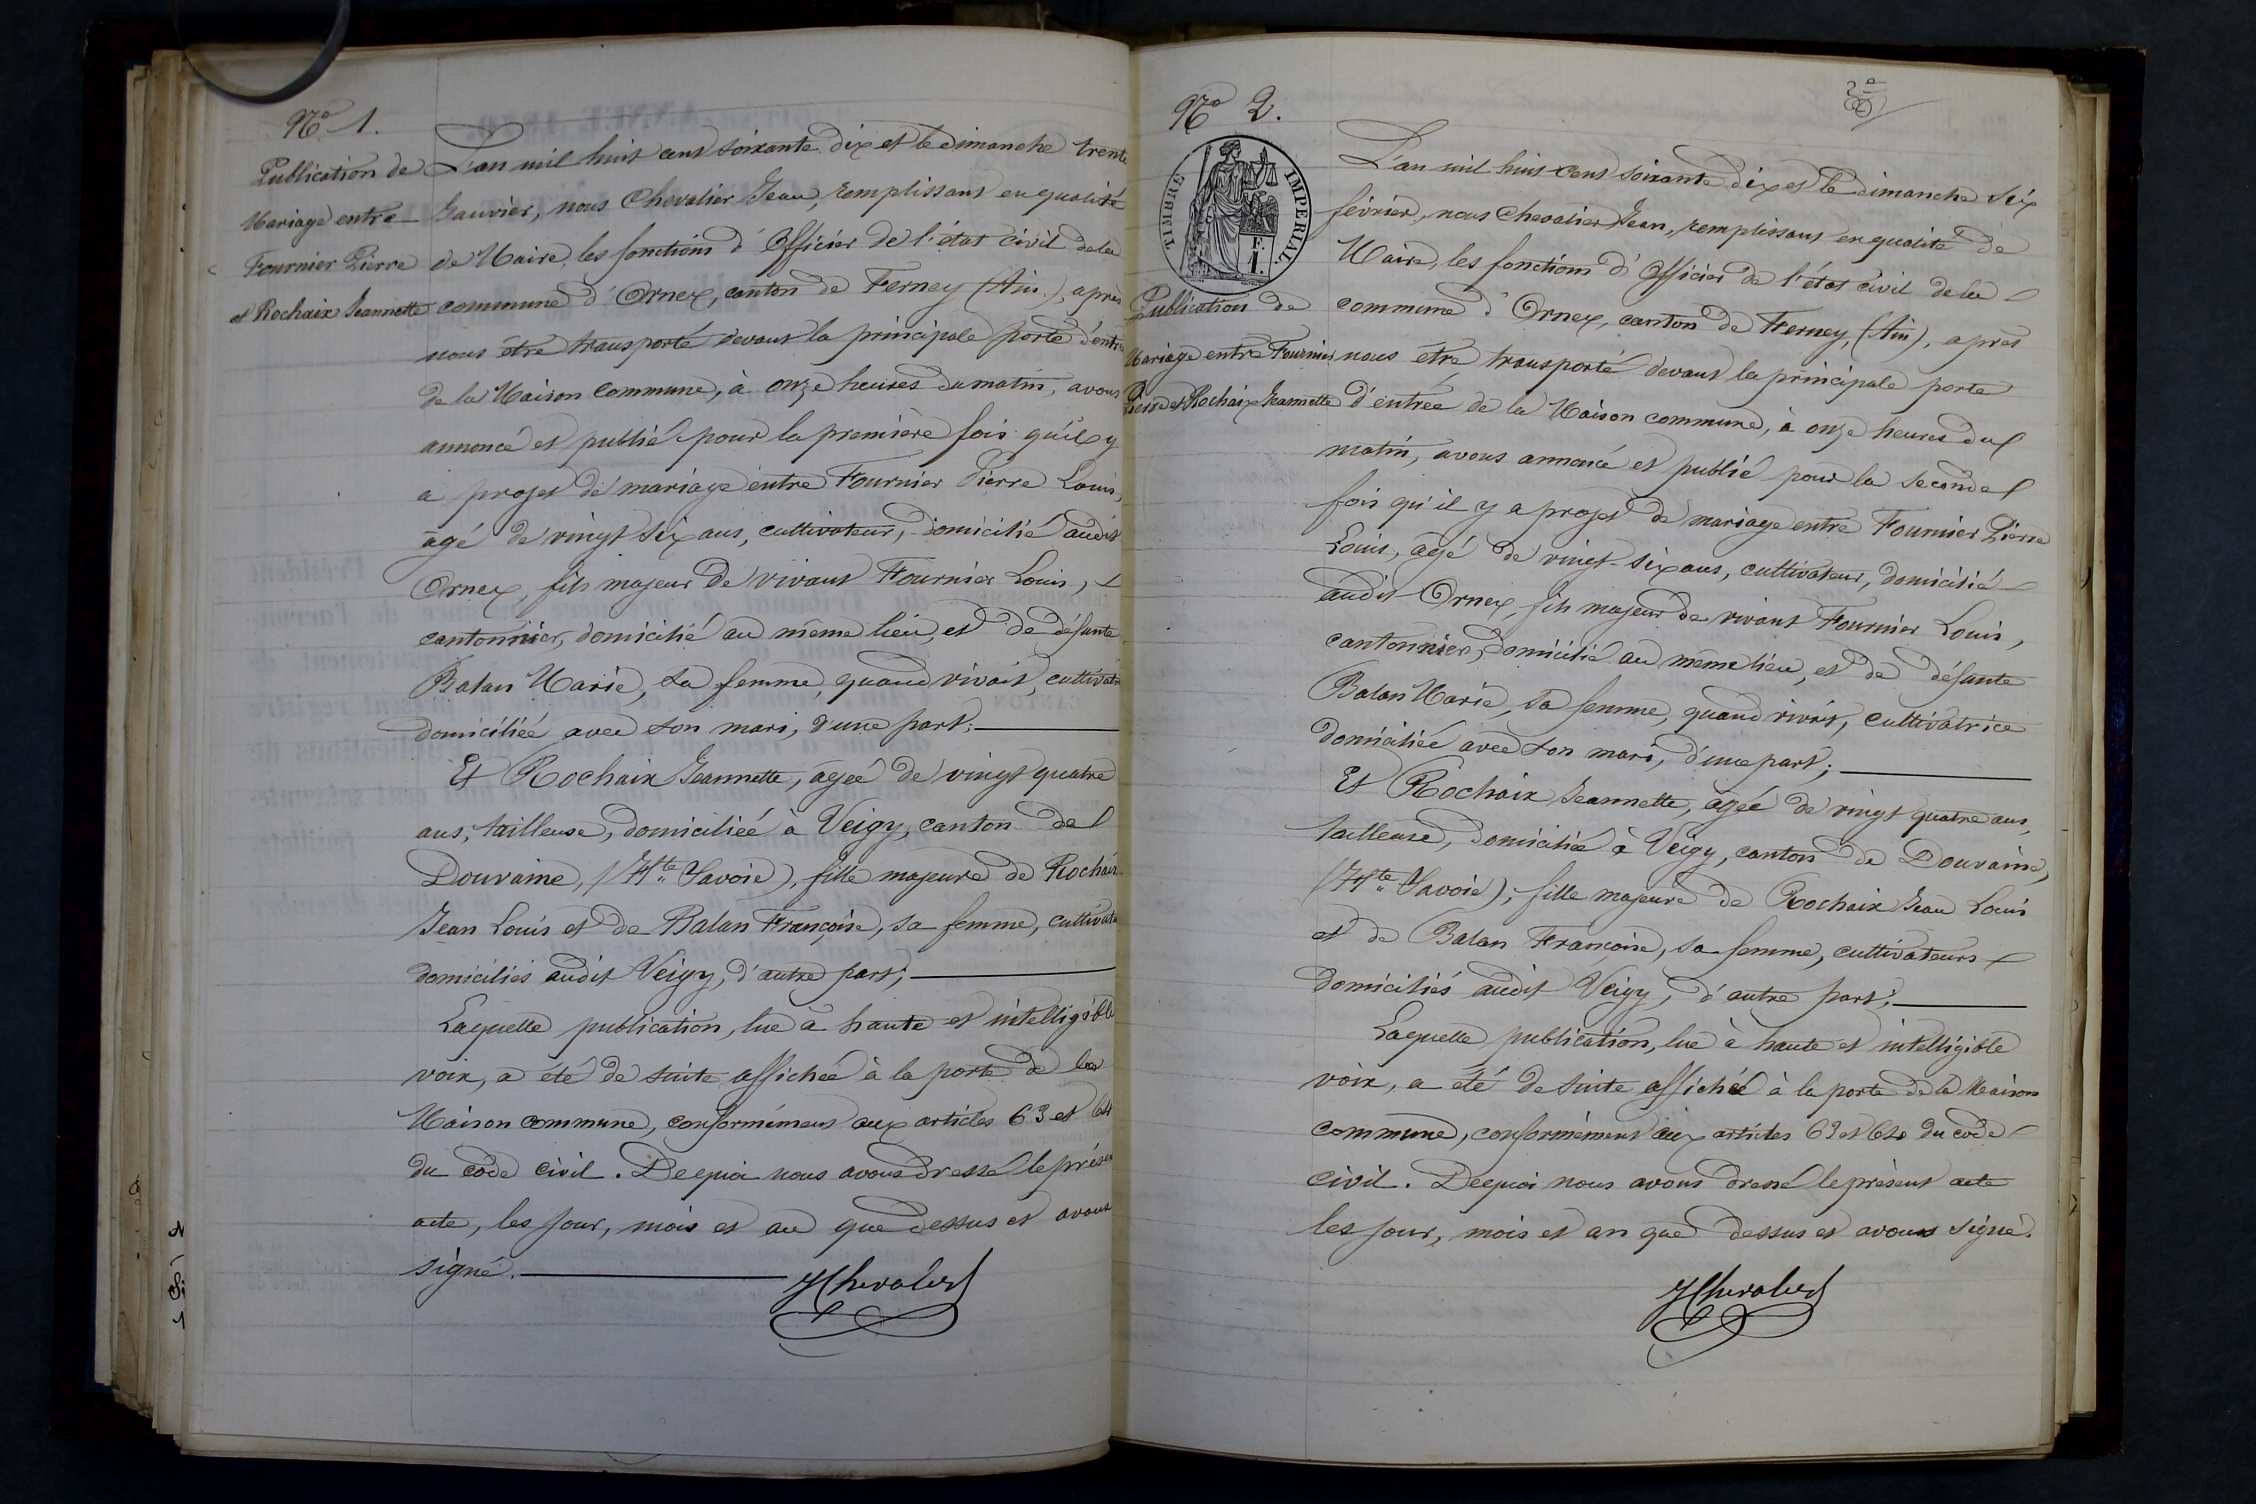 No 1.
Publication de
Mariage entre
Fournier Pierre
et Rochaix Jeannette
L'an mil huit cent soixante dix et le dimanche trente
Janvier, nous Chevalier Jean, remplissant en qualité
de Maire, les fonctions d'Officier de l'état civil de la
commune d'Ornex, canton de Ferney (Ain), après
nous être transporté devant la principale porte d'entré
de la Maison commune, à onze heures du matin, avons
annoncé et publié pour la première fois qu'il y
a projet de mariage entre Fournier Pierre Louis,
âgé de vingt six ans, cultivateur, domicilié audit
Ornex, fils majeur de vivant Fournier Louis,
cantonnier, domicilié au même lieu, et de défunte
Balan Marie, sa femme, quand vivait, cultivatr
domiciliée avec son mari, d'une part;
Et Rochaix Jeannette, âgée de vingt quatre
ans, tailleuse, domiciliée à Veigy, canton de
Douvaine, (Hte Savoie), fille majeure de Rochaix
Jean Louis et de Balan Françoise, sa femme, cultivate
domiciliés audit Veigy, d'autre part;
Laquelle publication, lue à haute et intelligible
voix, a été de suite affichée à la porte de la
Maison commune, conformément aux articles 63 et 64
du code civil. De quoi nous avons dressé le présen
acte, les jour, mois et an que dessus et avons
signé.
JChevalier
No 2.
2e
TIMBRE IMPERIAL.
F.
1.
Publication de
Mariage entre Fournier
Pierre et Rochaix Jeannette
L'an mil huit cent soixante dix et le dimanche six
février, nous Chevalier Jean, remplissant en qualité de
Maire, les fonctions d'Officier de l'état civil de la
commune d'Ornex, canton de Ferney, (Ain), après
nous être transporté devant la principale porte
d'entrée de la Maison commune, à onze heures du
matin, avons annoncé et publié pour la seconde
fois qu'il y a projet de mariage entre Fournier Pierre
Louis, âgé de vingt-six ans, cultivateur, domicilié
audit Ornex, fils majeur de vivant Fournier Louis,
cantonnier, domicilié au même lieu, et de défunte
Balan Marie, sa femme, quand vivait, cultivatrice
domiciliée avec son mari, d'une part;
Et Rochaix Jeannette, âgée de vingt quatre ans,
tailleuse, domiciliée à Veigy, canton de Douvaine,
(Hte Savoie), fille majeure de Rochaix Jean Louis
et de Balan Françoise, sa femme, cultivateurs
domiciliés audit Veigy, d'autre part;
Laquelle publication, lue à haute et intelligible
voix, a été de suite affichée à la porte de la Maison
commune, conformément aux articles 63 et 64 du code
civil. De quoi nous avons dressé le présent acte
les jour, mois et an que dessus et avons signé.
JChevalier